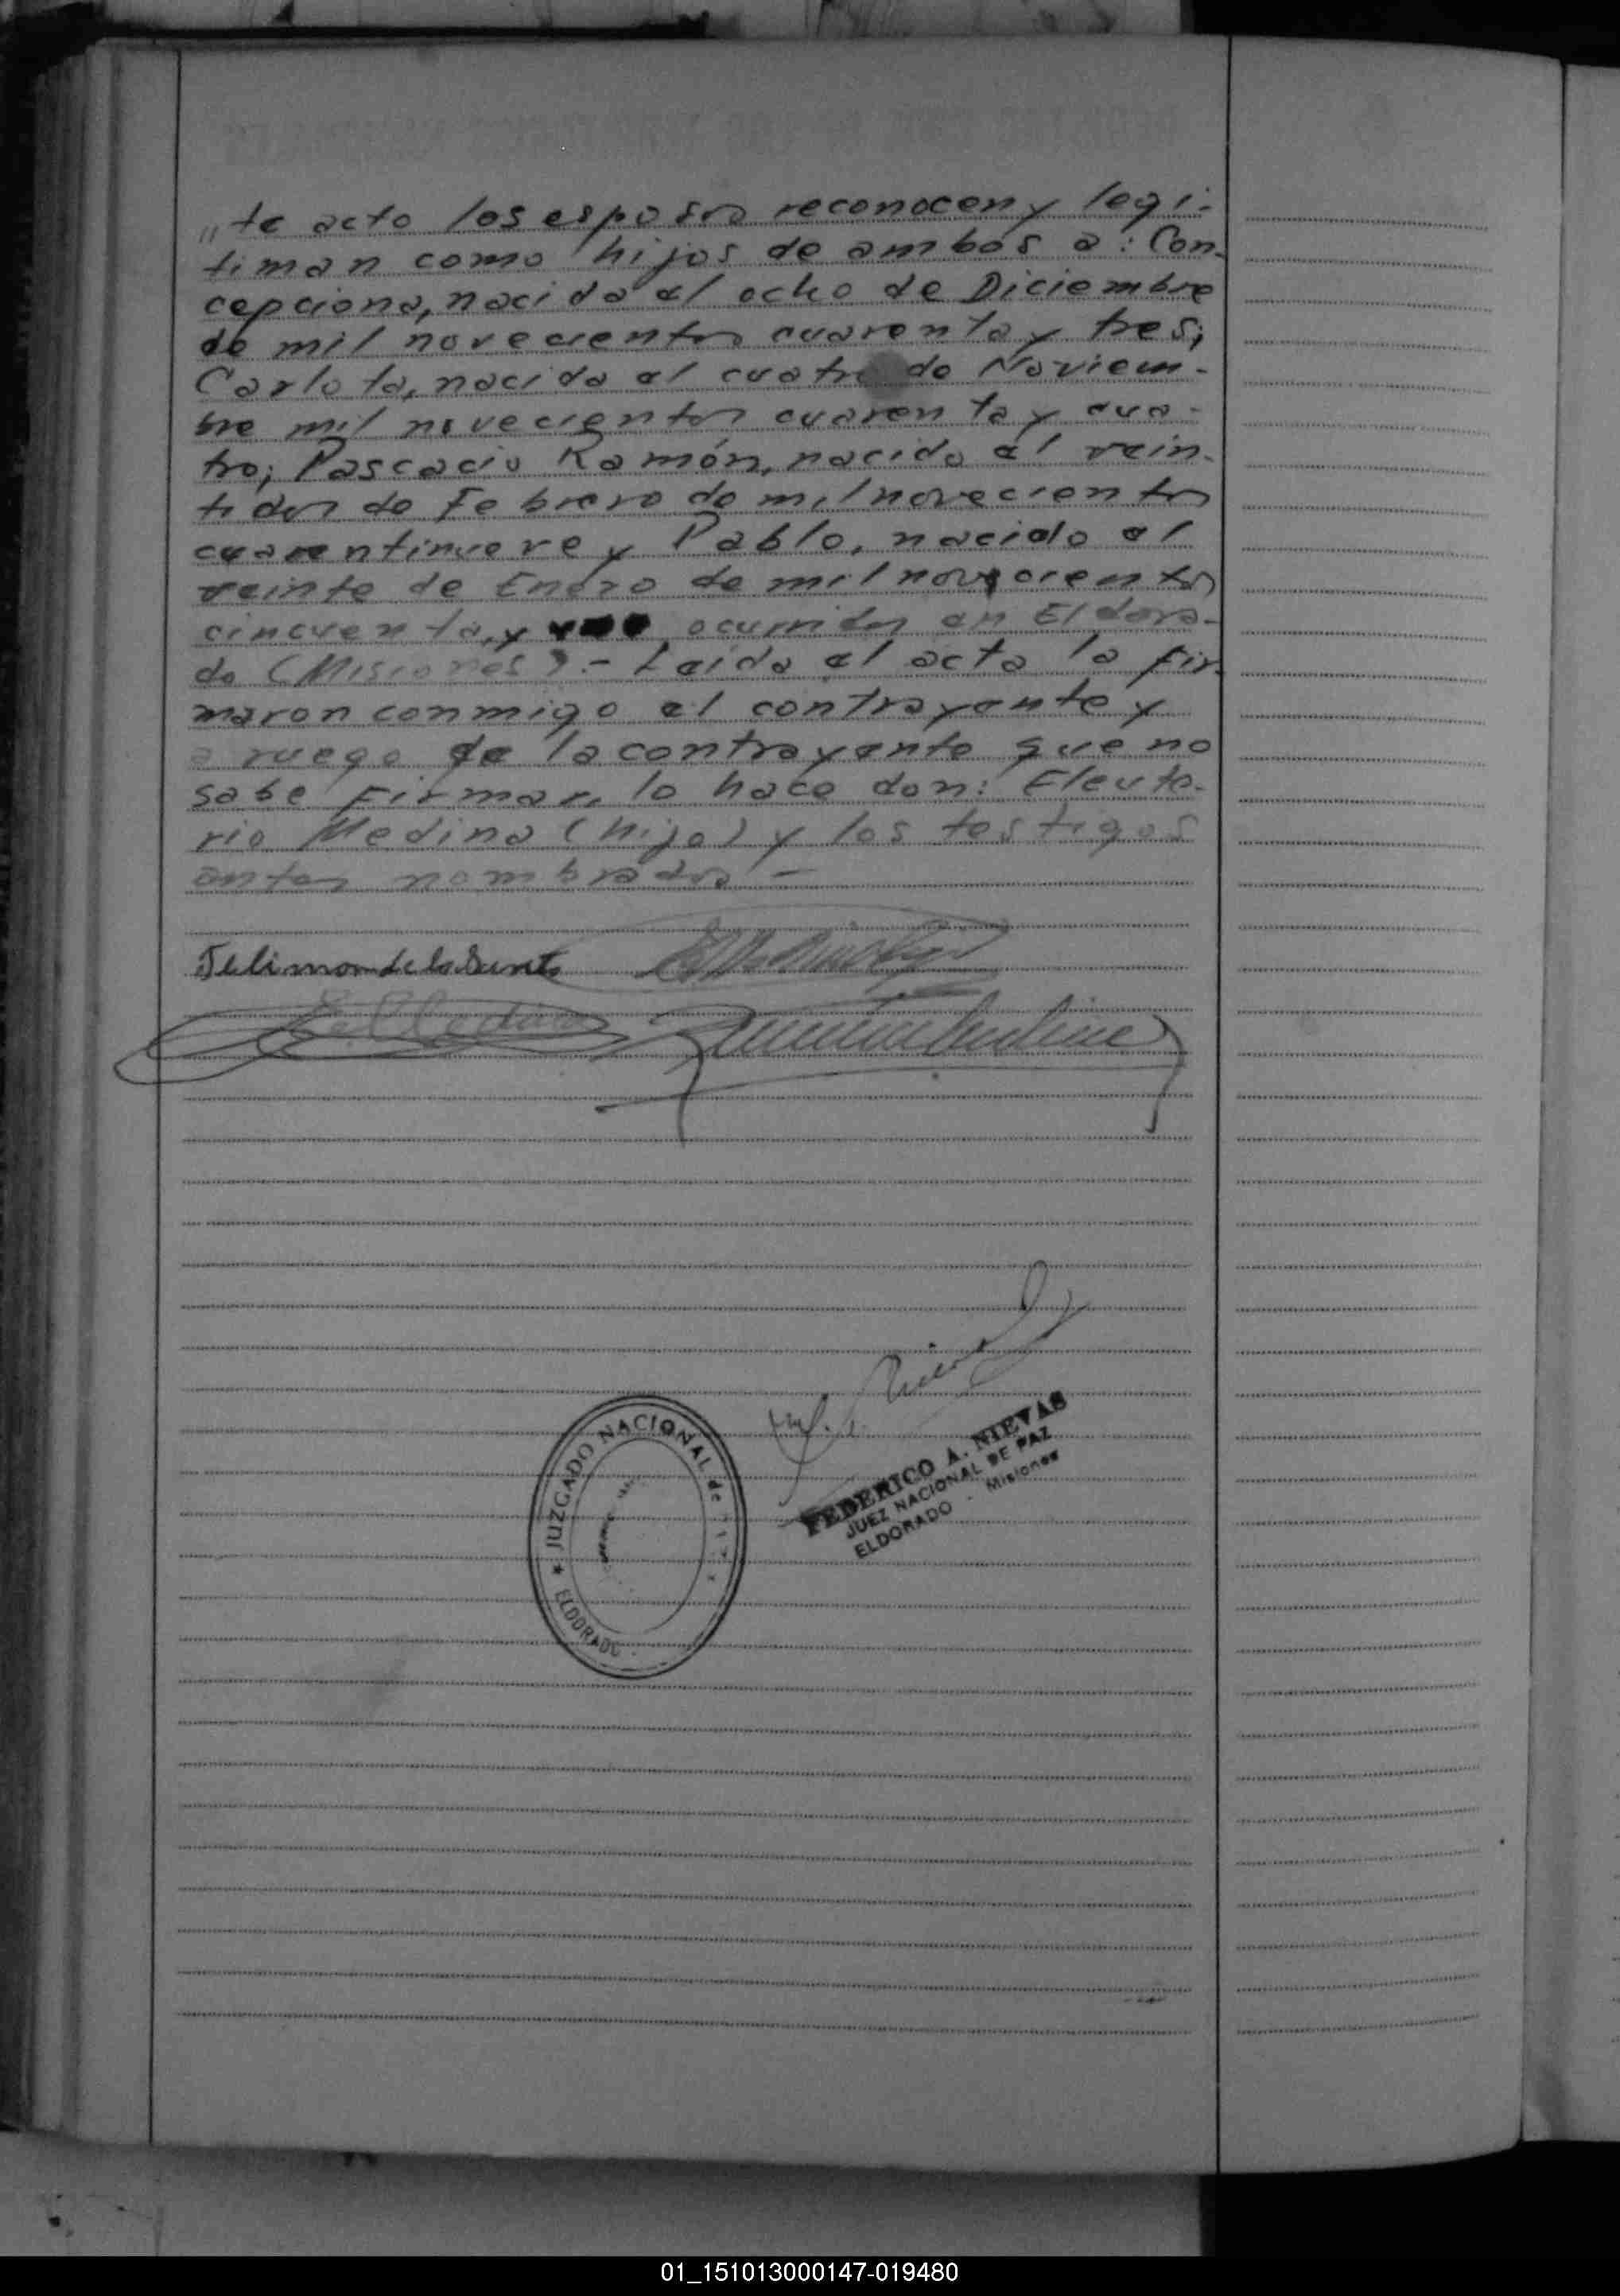 „te acto los esposos reconocen y legi-
timan como hijos de ambos a: Con-
cepciona, nacida el ocho de Diciembre
de mil novecientos cuarenta y tres;
Carlota, nacida el cuatro de Noviem-
bre mil novecientos cuarenta y cua-
tro; Pascacio Ramón, nacido el vein-
tidos de Febrero de mil novecientos
cuarentinueve y Pablo, nacido el
veinte de Enero de mil novecientos
cincuenta, y ocurridos en Eldora-
do (Misiones).- Leida el acta la fir-
maron conmigo el contrayente y
a ruego de la contrayente que no
sabe firmar, lo hace don: Eleute-
rio Medina (hijo) y los testigos
antes nombrados -
JUZGADO NACIONAL de
ELDORADO
FEDERICO A. NIEVAS
JUEZ NACIONAL DE PAZ
ELDORADO - Misiones
01_151013000147-019480